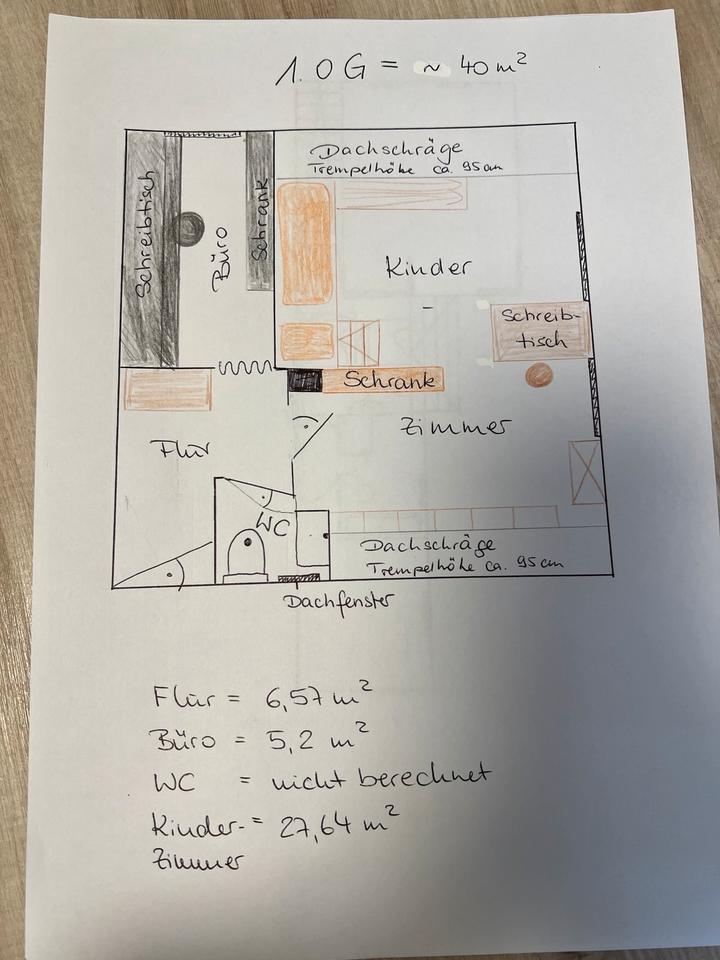 1. OG = ~ 40 m²
Dachschräge
Trempelhöhe ca. 95cm
Schreibtisch
Büro
Schrank
Kinder
-
Schreib-
tisch
Schrank
Zimmer
Flur
WC
Dachschräge
Trempelhöhe ca. 95cm
Dachfenster
Flur = 6,57 m²
Büro = 5,2 m²
WC = nicht berechnet
Kinder- = 27,64 m²
Zimmer